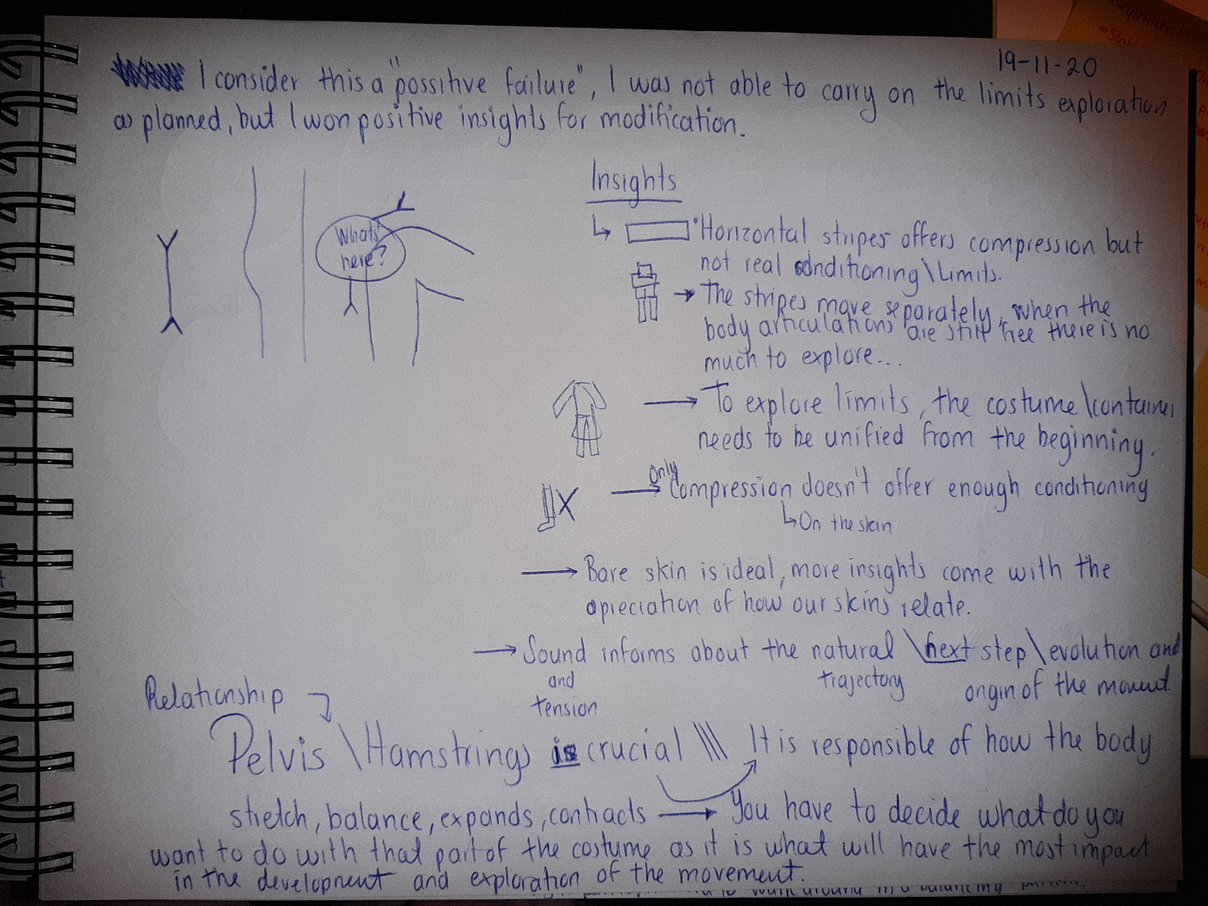 19-11-20
I consider this a "possitive failure", I was not able to carry on the limits exploration
as planned, but I won positive insights for modification.
Whats
here?
Insights
Horizontal stripes offers compression but
not real conditioning\Limits.
The stripes move separately, when the
body articulations are still free there is no
much to explore...
To explore limits, the costume\container
needs to be unified from the beginning.
only
Compression doesn't offer enough conditioning
On the skin
Bare skin is ideal, more insights come with the
apreciation of how our skins relate.
Sound informs about the natural \next step\evolution and
and
tension
trajectory
origin of the movement
Relationship
Pelvis \Hamstrings is crucial \\\ It is responsible of how the body
stretch, balance, expands, contracts → You have to decide what do you
want to do with that part of the costume as it is what will have the most impact
in the development and exploration of the movement.